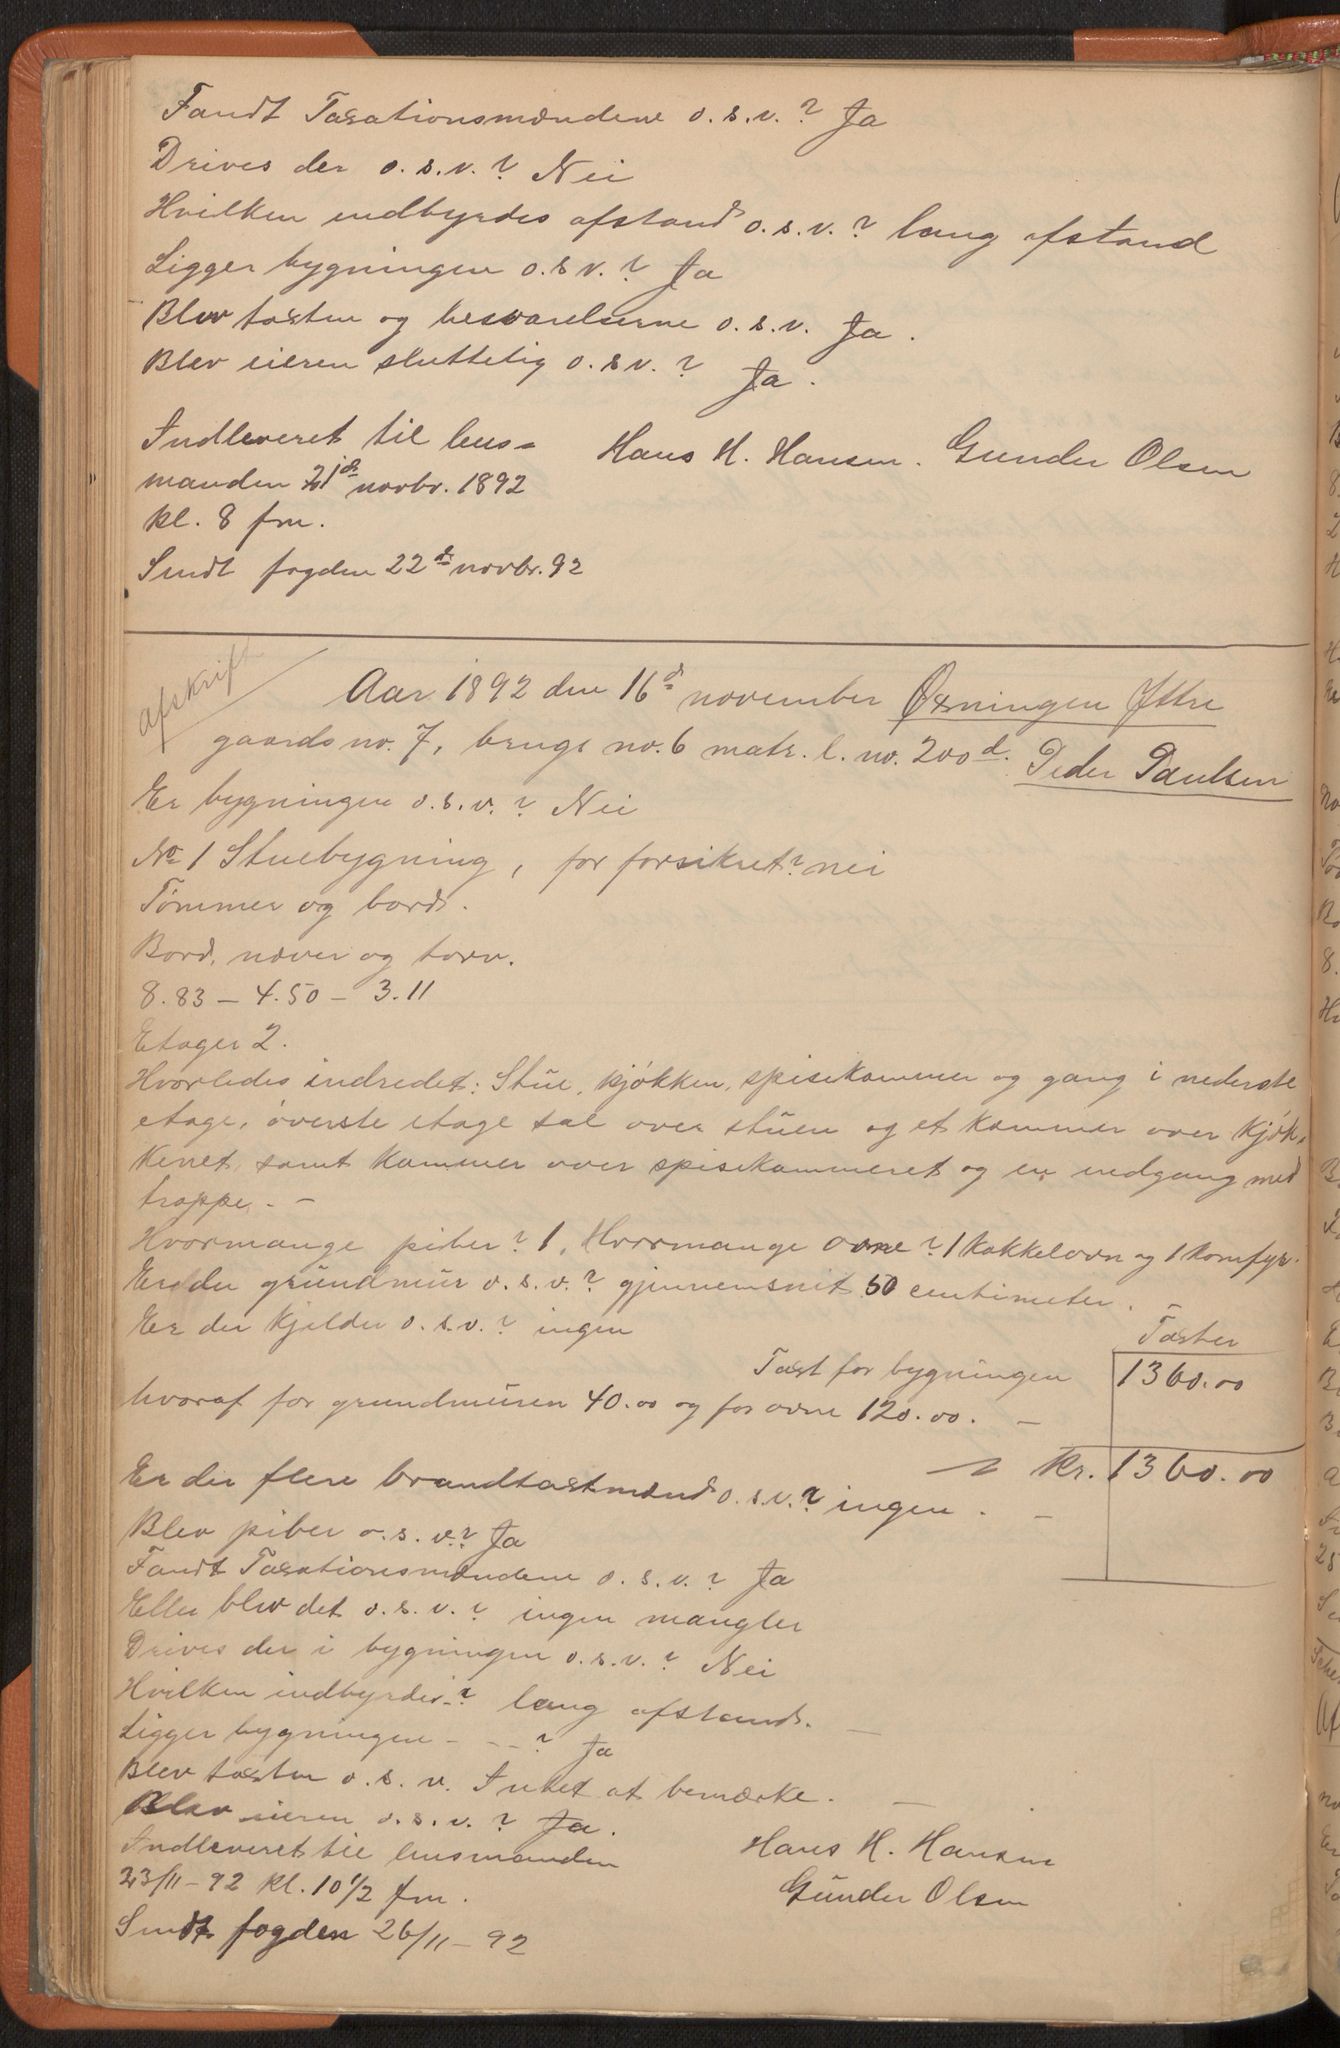 Fandt Taxationsmændene o.s.v.? Ja
Drives der o.s.v.? Nei
Hvilken indbyrdes afstand o.s.v.? lang afstand
Ligger bygningen o.s.v.? Ja
Blev taxten og besvarelserne o.s.v. Ja.
Blev eieren sluttelig o.s.v.? Ja.
Indleveret til lens=
manden 21de novbr. 1892
kl. 8 fm.
Hans H. Hansen. Gunder Olsen
Sendt fogden 22de novbr. 92
afskrift
Aar 1892 den 16de november Øxningen Yttre
gaards no. 7, brugs no. 6 matr. l. no. 200d. Peder Paulsen
Er bygningen o.s.v.? Nei
No 1 Stuebygning, før forsikret? nei
Tømmer og bord.
Bord, næver og torv.
8.83 – 4.50 – 3.11
Etager 2.
Hvorledes indredet: Stue, kjøkken, spisekammer og gang i nederste
etage, øverste etage sal over stuen og et kammer over kjøk=
kenet, samt kammer over spisekammeret og en nedgang med
trappe. –
Hvormange piber? 1. Hvormange ovne? 1 kakkelovn og 1 komfyr.
Er der grundmur o.s.v.? gjennemsnit 50 centimeter. –
Er der kjelder o.s.v.? ingen
Taxter
Taxt for bygningen 1360.00
hvoraf for grundmuren 40.00 og for ovne 120.00. –
kr. 1360.00
Er der flere brandtaxtmænd o.s.v.? ingen. –
Blev piber o.s.v.? Ja
Fandt Taxationsmændene o.s.v.? Ja
Eller blev det o.s.v.? ingen mangler
Drives der i bygningen o.s.v.? Nei
Hvilken indbyrdes –? lang afstand. –
Ligger bygningen – – –? Ja
Blev taxten o.s.v. Intet at bemærke. –
Blev eieren o.s.v.? Ja.
Indleveret til lensmanden
23/11 – 92 kl. 10 1/2 fm.
Hans H. Hansen
Gunder Olsen
Sendt fogden 26/11 – 92